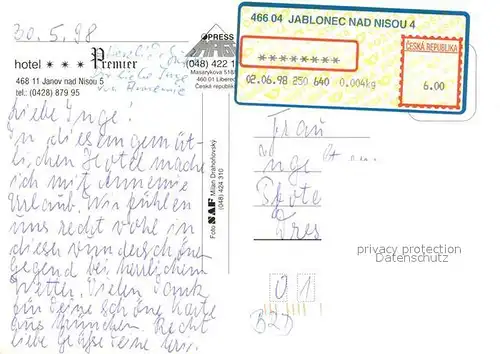 30.5.98
hotel *** Premier
468 11 Janov nad Nisou 5
tel.: (0428) 879 95
Liebe Inge!
In diesem gemüt-
lichen Hotel mache
ich mit Annemie
Urlaub. Wir fühlen
uns recht wohl in
dieser wunderschönen
Gegend bei herrlichem
Wetter. Vielen Dank
für Deine schöne Karte
aus München. Recht
liebe Grüße Deine
PRESS
(048) 422 1
Masarykova 518/
460 01 Liberec
Česká republika
Foto SAF Milan Drahoňovský
(048) 424 310
466 04 JABLONEC NAD NISOU 4
********
02.06.98 250 640 0.004kg
ČESKÁ REPUBLIKA
6.00
Frau
Inge
Pfote
Dres
privacy protection
Datenschutz
01